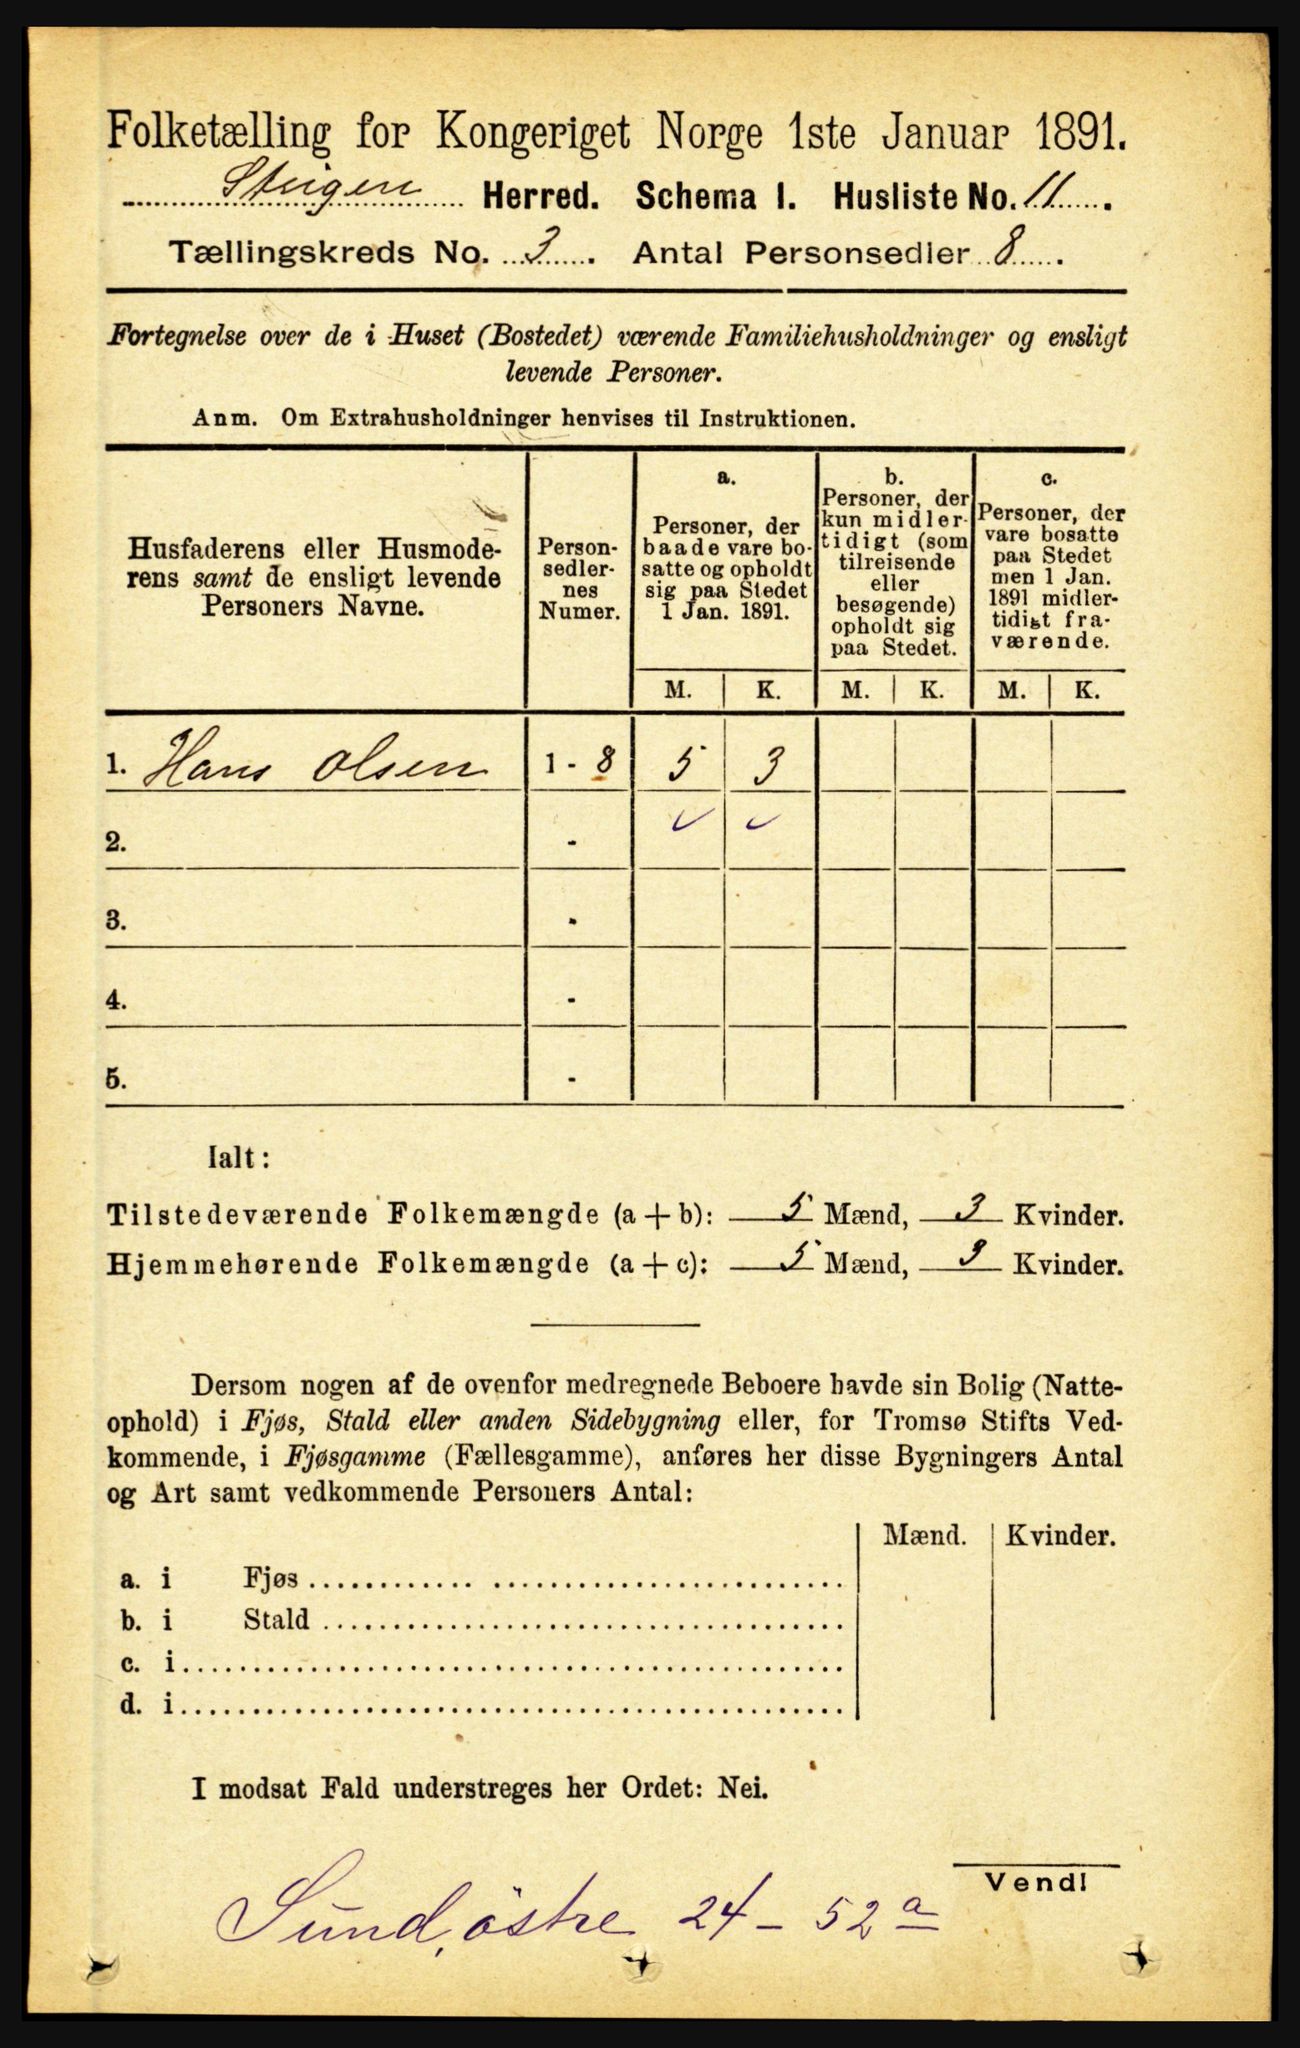 Folketælling for Kongeriget Norge 1ste Januar 1891.
Steigen Herred. Schema I. Husliste No. 11.
Tællingskreds No. 3. Antal Personsedler 8.
Fortegnelse over de i Huset (Bostedet) værende Familiehusholdninger og ensligt
levende Personer.
Anm. Om Extrahusholdninger henvises til Instruktionen.
Husfaderens eller Husmode-
rens samt de ensligt levende
Personers Navne.
Person-
sedler-
nes
Numer.
a.
Personer, der
baade vare bo-
satte og opholdt
sig paa Stedet
1 Jan. 1891.
b.
Personer, der
kun midler-
tidigt (som
tilreisende
eller
besøgende)
opholdt sig
paa Stedet.
c.
Personer, der
vare bosatte
paa Stedet
men 1 Jan.
1891 midler-
tidigt fra-
værende.
M. K. M. K. M. K.
1. Hans Olsen 1 - 8 5 3
2. - ✓ ✓
3. -
4. -
5. -
Ialt:
Tilstedeværende Folkemængde (a + b): 5 Mænd, 3 Kvinder.
Hjemmehørende Folkemængde (a + c): 5 Mænd, 3 Kvinder.
Dersom nogen af de ovenfor medregnede Beboere havde sin Bolig (Natte-
ophold) i Fjøs, Stald eller anden Sidebygning eller, for Tromsø Stifts Ved-
kommende, i Fjøsgamme (Fællesgamme), anføres her disse Bygningers Antal
og Art samt vedkommende Personers Antal:
Mænd. Kvinder.
a. i Fjøs
b. i Stald
c. i
d. i
I modsat Fald understreges her Ordet: Nei.
Vend!
Sund, östre 24 - 52 a